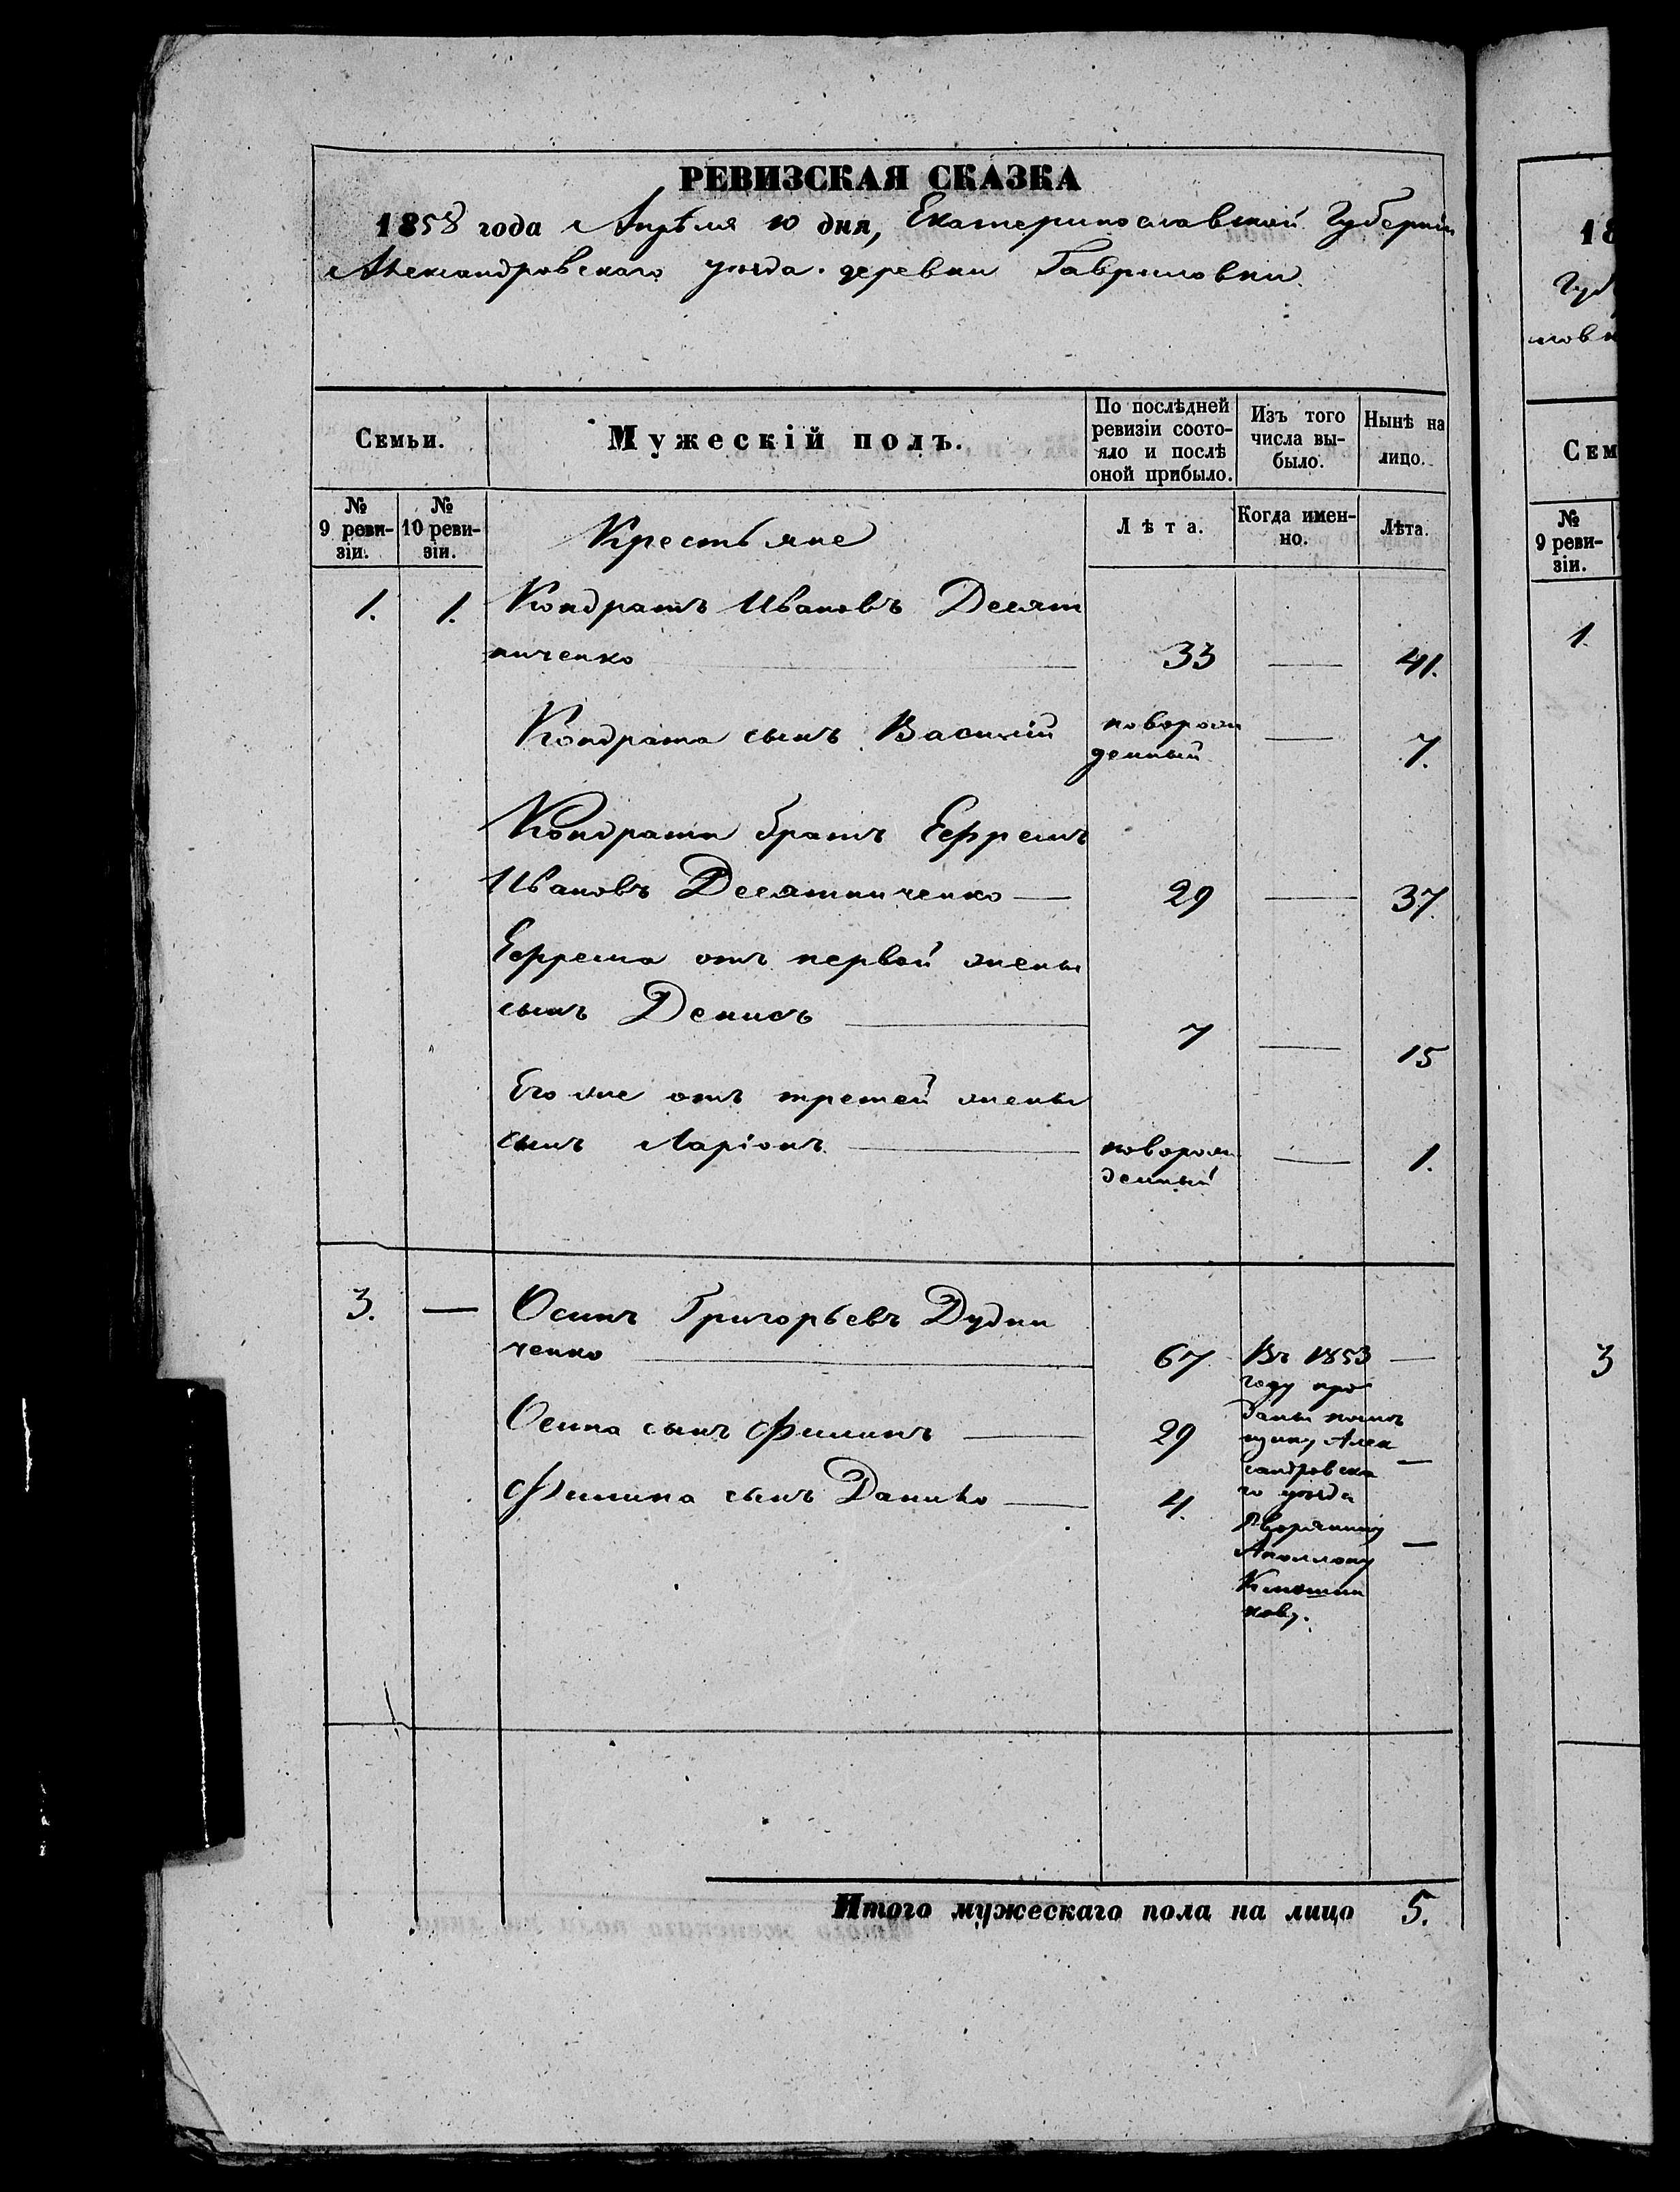 РЕВИЗСКАЯ СКАЗКА
1858 года Апрѣля 10 дня, Екатеринославской Губерніи
Александровскаго уѣзда деревни Гавриловки
Семьи. Мужескій полъ. По послѣдней ревизіи состояло и послѣ оной прибыло. Изъ того числа выбыло. Нынѣ на лицо.
№ 9 ревизіи. № 10 ревизіи. Лѣта. Когда именно. Лѣта.
Крестьяне
1. 1. Кондратъ Ивановъ Десят
ниченко 33 — 41.
Кондрата сынъ Василій неворож
денный — 7.
Кондрата братъ Ефремъ
Ивановъ Десятниченко — 29 — 37.
Ефрема отъ первой жены
сынъ Денисъ 7 — 15
Его же отъ третей жены
сынъ Ларіонъ новорож
денный — 1.
3. — Осипъ Григорьевъ Дудни
ченко 67 Въ 1853 —
году про
даны помѣ
щику Алек
сандровска
го уѣзда
Дворянину
Аполлону
Осипа сынъ Филипъ — 29 —
Филипа сынъ Данило — 4. —
Итого мужескаго пола на лицо 5.
18
Губ
ловк
Сем
№
9 реви-
зіи.
1.
3